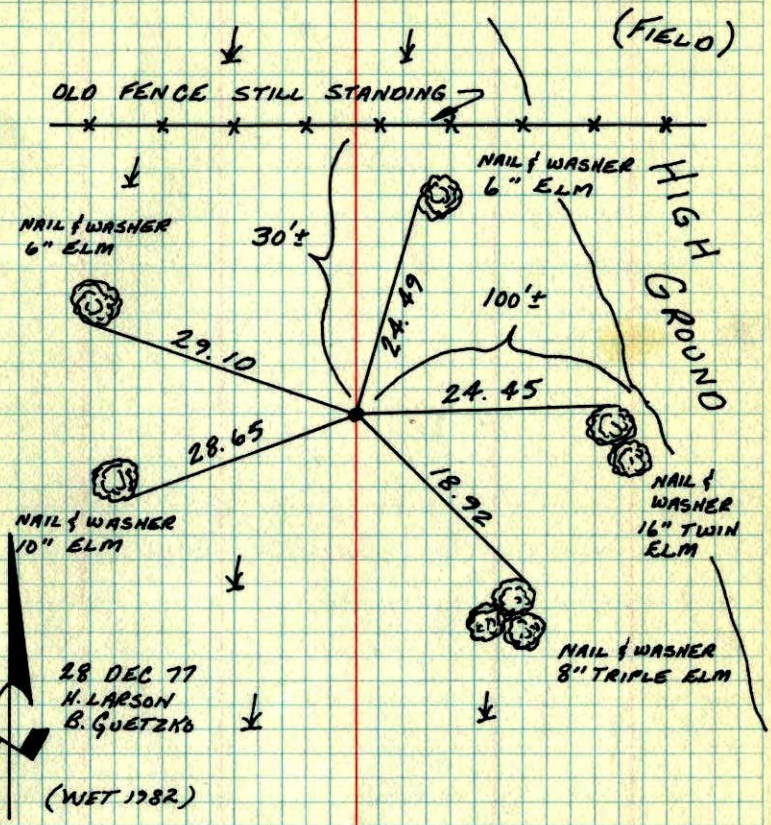 (FIELD)
OLD FENCE STILL STANDING
NAIL & WASHER
6" ELM
HIGH GROUND
NAIL & WASHER
6" ELM
30'±
24.49
100'±
29.10
24.45
28.65
18.92
NAIL & WASHER
10" ELM
NAIL &
WASHER
16" TWIN
ELM
NAIL & WASHER
8" TRIPLE ELM
28 DEC 77
H. LARSON
B. GUETZKO
(WET 1982)